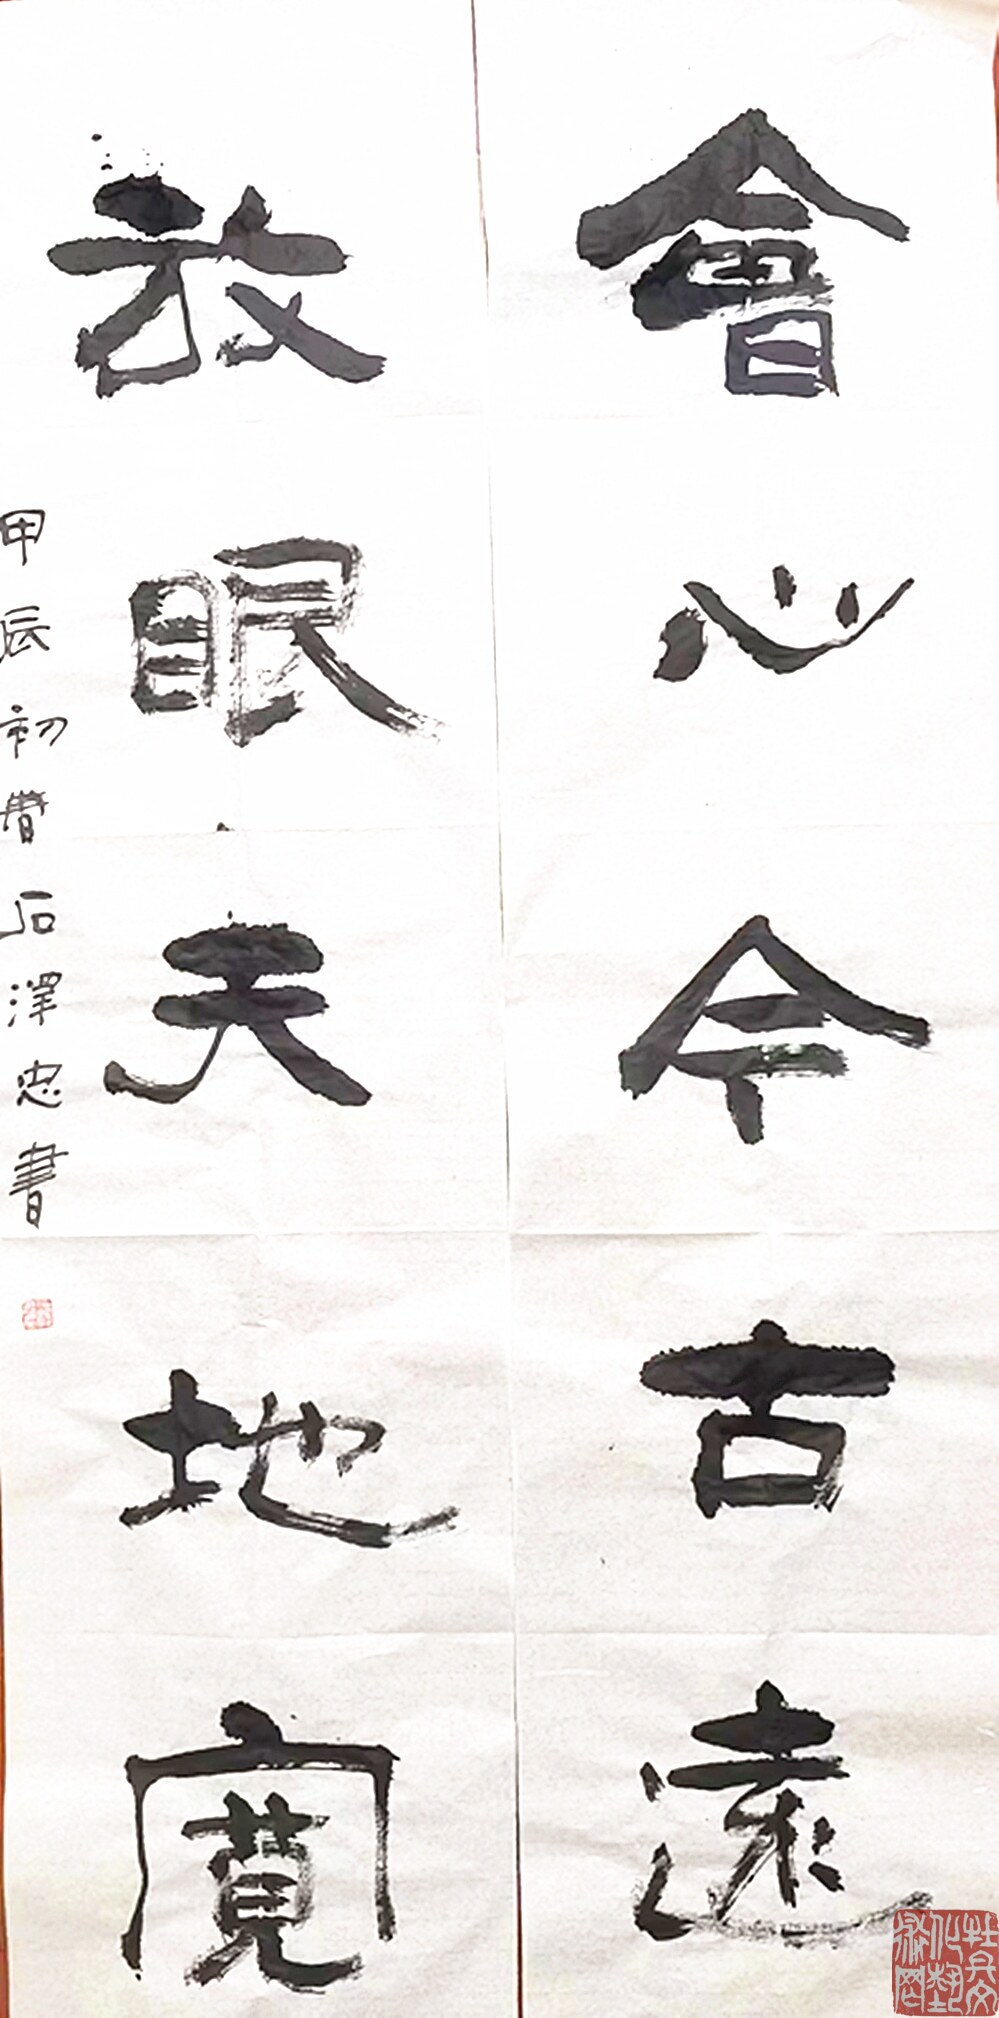 會心今古遠
放眼天地寬
甲辰初春石澤忠書